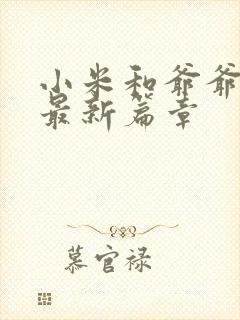 小米和爷爷
最新篇章
慕官禄